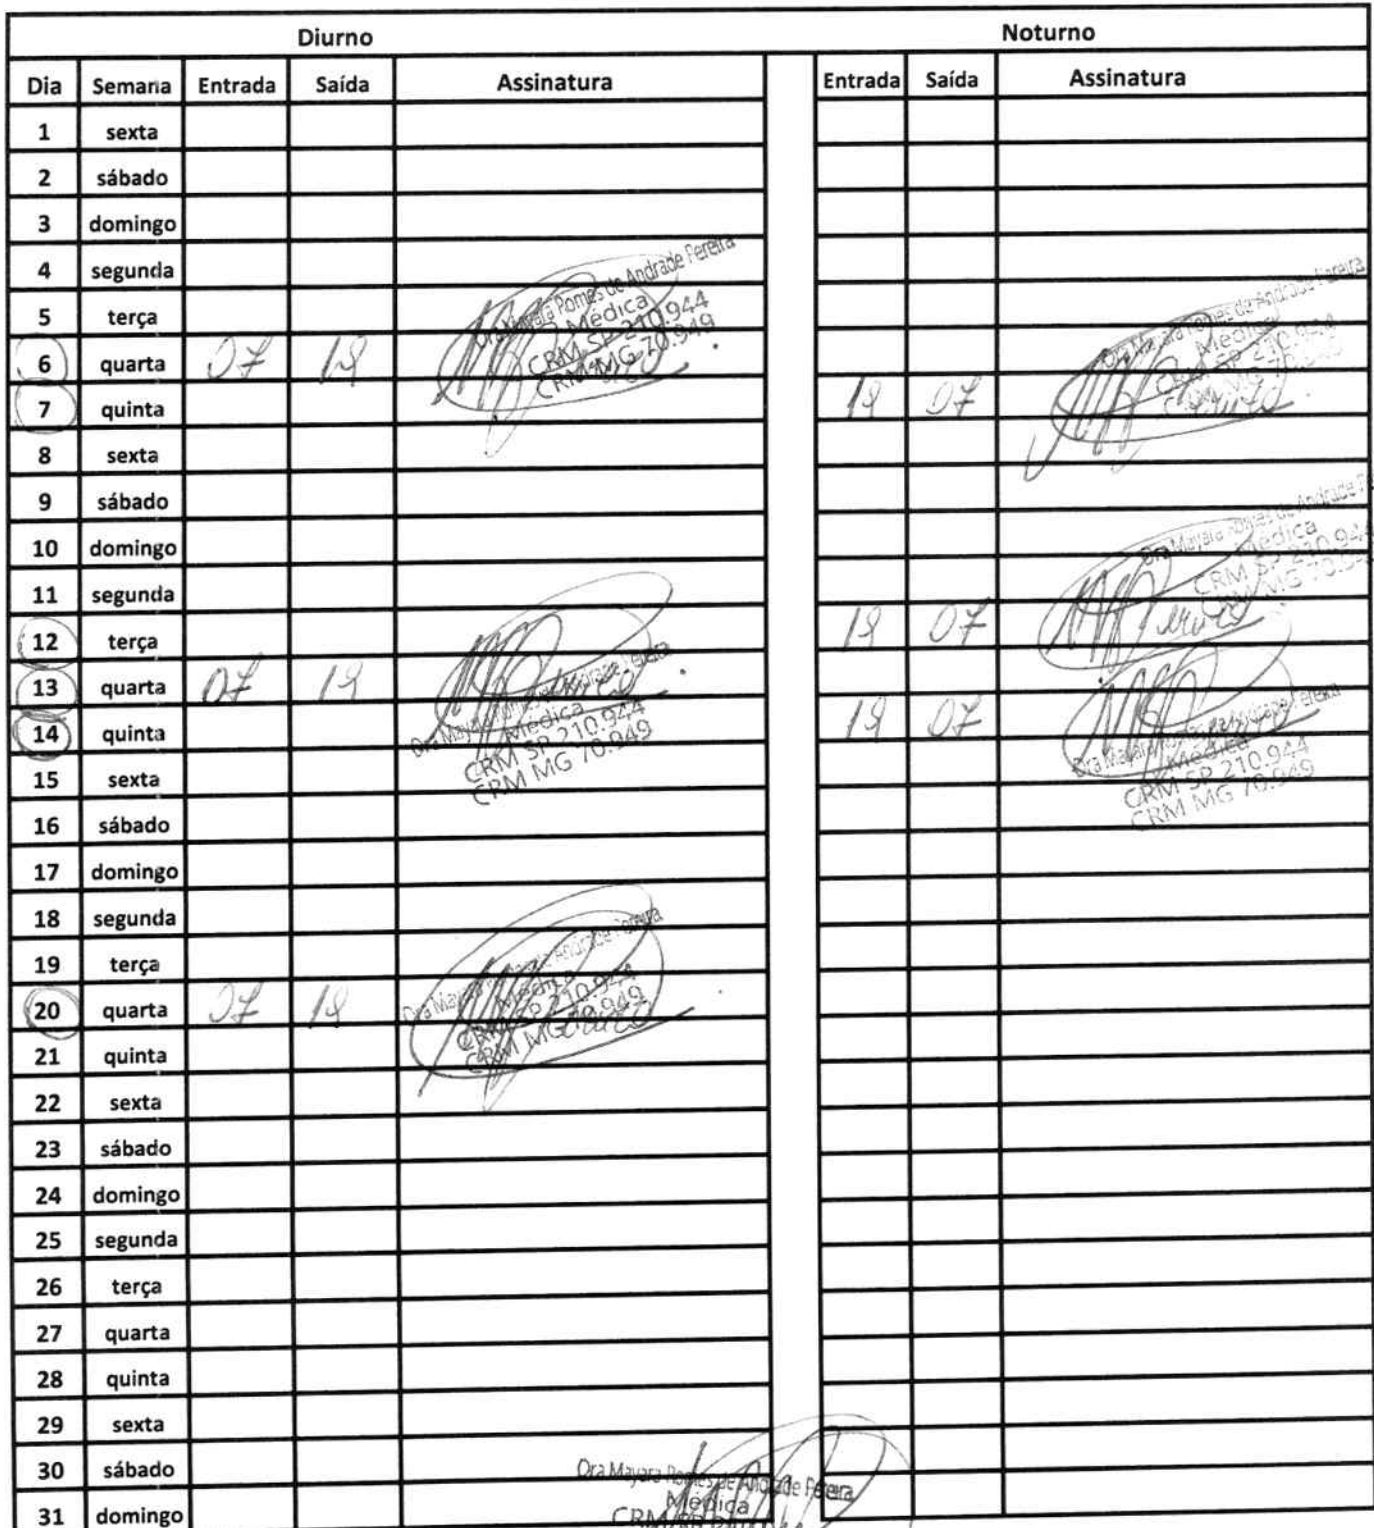 Diurno Noturno
Dia Semana Entrada Saída Assinatura Entrada Saída Assinatura
1 sexta
2 sábado
3 domingo
4 segunda
5 terça
6 quarta 07 19
Dra Mayara Pomes de Andrade Pereira
Médica
CRM SP 210.944
CRM MG 70.949
7 quinta 19 07
Dra Mayara Pomes de Andrade Pereira
Médica
CRM SP 210.944
CRM MG 70.949
8 sexta
9 sábado
10 domingo
11 segunda
12 terça 19 07
Dra Mayara Pomes de Andrade
Médica
CRM SP 210.944
CRM MG 70.949
13 quarta 07 19
Dra Mayara Pomes de Andrade Pereira
Médica
CRM SP 210.944
CRM MG 70.949
14 quinta 19 07
Dra Mayara Pomes de Andrade Pereira
Médica
CRM SP 210.944
CRM MG 70.949
15 sexta
16 sábado
17 domingo
18 segunda
19 terça
20 quarta 07 19
Dra Mayara Pomes de Andrade Pereira
Médica
CRM SP 210.944
CRM MG 70.949
21 quinta
22 sexta
23 sábado
24 domingo
25 segunda
26 terça
27 quarta
28 quinta
29 sexta
30 sábado
31 domingo
Dra Mayara Pomes de Andrade Pereira
Médica
CRM SP